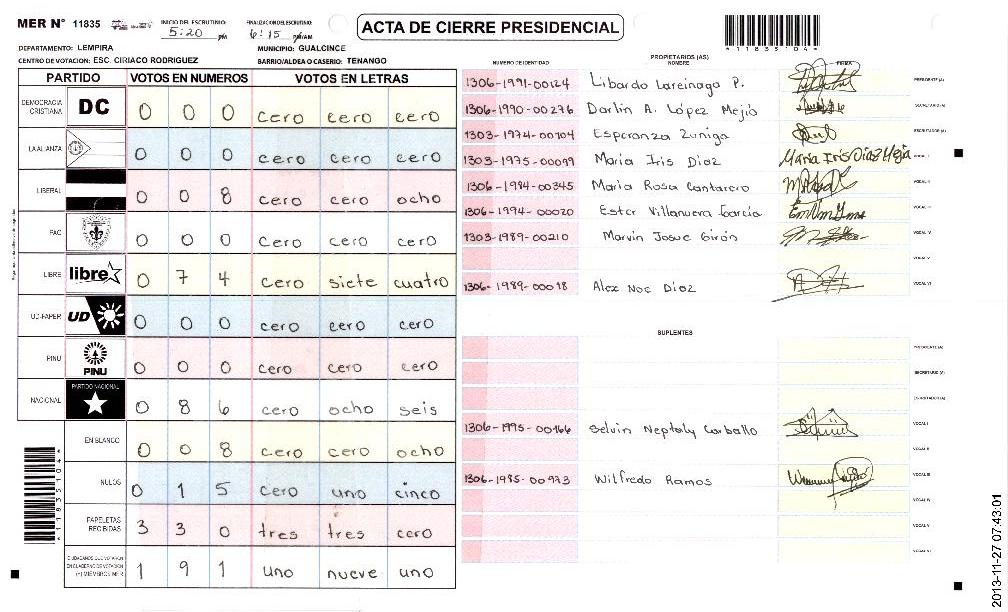 MER N° 11835
INICIO DEL ESCRUTINIO: 5:20 PM
FINALIZACION DEL ESCRUTINIO: 6:15
ACTA DE CIERRE PRESIDENCIAL
*11835104*
DEPARTAMENTO: LEMPIRA
MUNICIPIO: GUALCINCE
CENTRO DE VOTACION: ESC. CIRIACO RODRIGUEZ
BARRIO/ALDEA O CASERIO: TENANGO
PARTIDO VOTOS EN NUMEROS VOTOS EN LETRAS
DEMOCRACIA CRISTIANA DC 0 0 0 cero cero cero
LA ALIANZA 0 0 0 cero cero cero
LIBERAL 0 0 8 cero cero ocho
PAC 0 0 0 cero cero cero
LIBRE libre 0 7 4 cero siete cuatro
UD-FAPER UD 0 0 0 cero cero cero
PINU PINU 0 0 0 cero cero cero
NACIONAL PARTIDO NACIONAL 0 8 6 cero ocho seis
EN BLANCO 0 0 8 cero cero ocho
NULOS 0 1 5 cero uno cinco
PAPELETAS RECIBIDAS 3 3 0 tres tres cero
CIUDADANOS QUE VOTARON EN CUADERNO DE VOTACION (+) MIEMBROS MER 1 9 1 uno nueve uno
*11835104*
PROPIETARIOS (AS)
NUMERO DE IDENTIDAD NOMBRE FIRMA
1306-1991-00124 Libardo Lareinaga P. PRESIDENTE (A)
1306-1990-00276 Darlin A. López Mejió SECRETARIO (A)
1303-1974-00704 Esperanza Zuniga ESCRUTADOR (A)
1303-1975-00099 Maria Iris Diaz Maria Iris Diaz Mejia VOCAL I
1306-1984-00345 Maria Rosa Cantarero VOCAL II
1306-1994-00020 Ester Villanueva García VOCAL III
1303-1989-00210 Marvin Josue Girón VOCAL IV
VOCAL V
1306-1989-00018 Alex Noe Diaz VOCAL VI
SUPLENTES
PRESIDENTE (A)
SECRETARIO (A)
ESCRUTADOR (A)
1306-1995-00166 Selvin Neptaly Carballo VOCAL I
VOCAL II
1306-1985-00923 Wilfredo Ramos VOCAL III
VOCAL IV
VOCAL V
VOCAL VI
2013-11-27 07:43:01